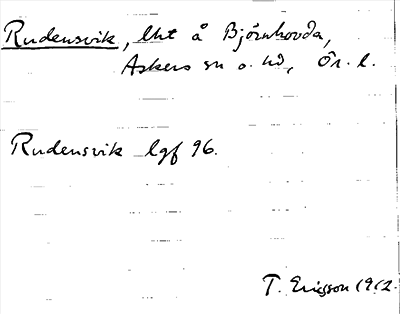 Rudensvik, lht å Björnhovda,
Askers sn o. hd, Ör. l.
Rudensvik lgf 96.
T. Ericsson 1912.